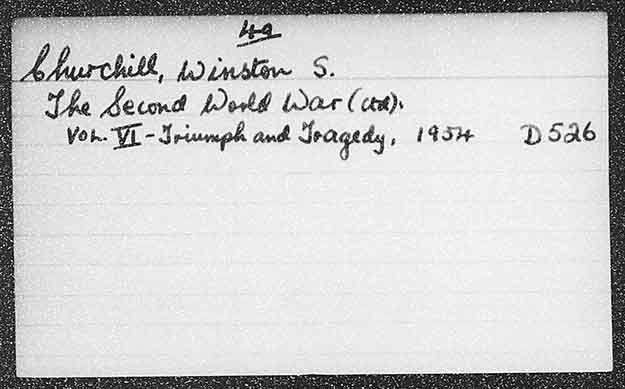 4a
Churchill, Winston S.
The Second World War (ctd).
VOL. VI - Triumph and Tragedy, 1954 D526